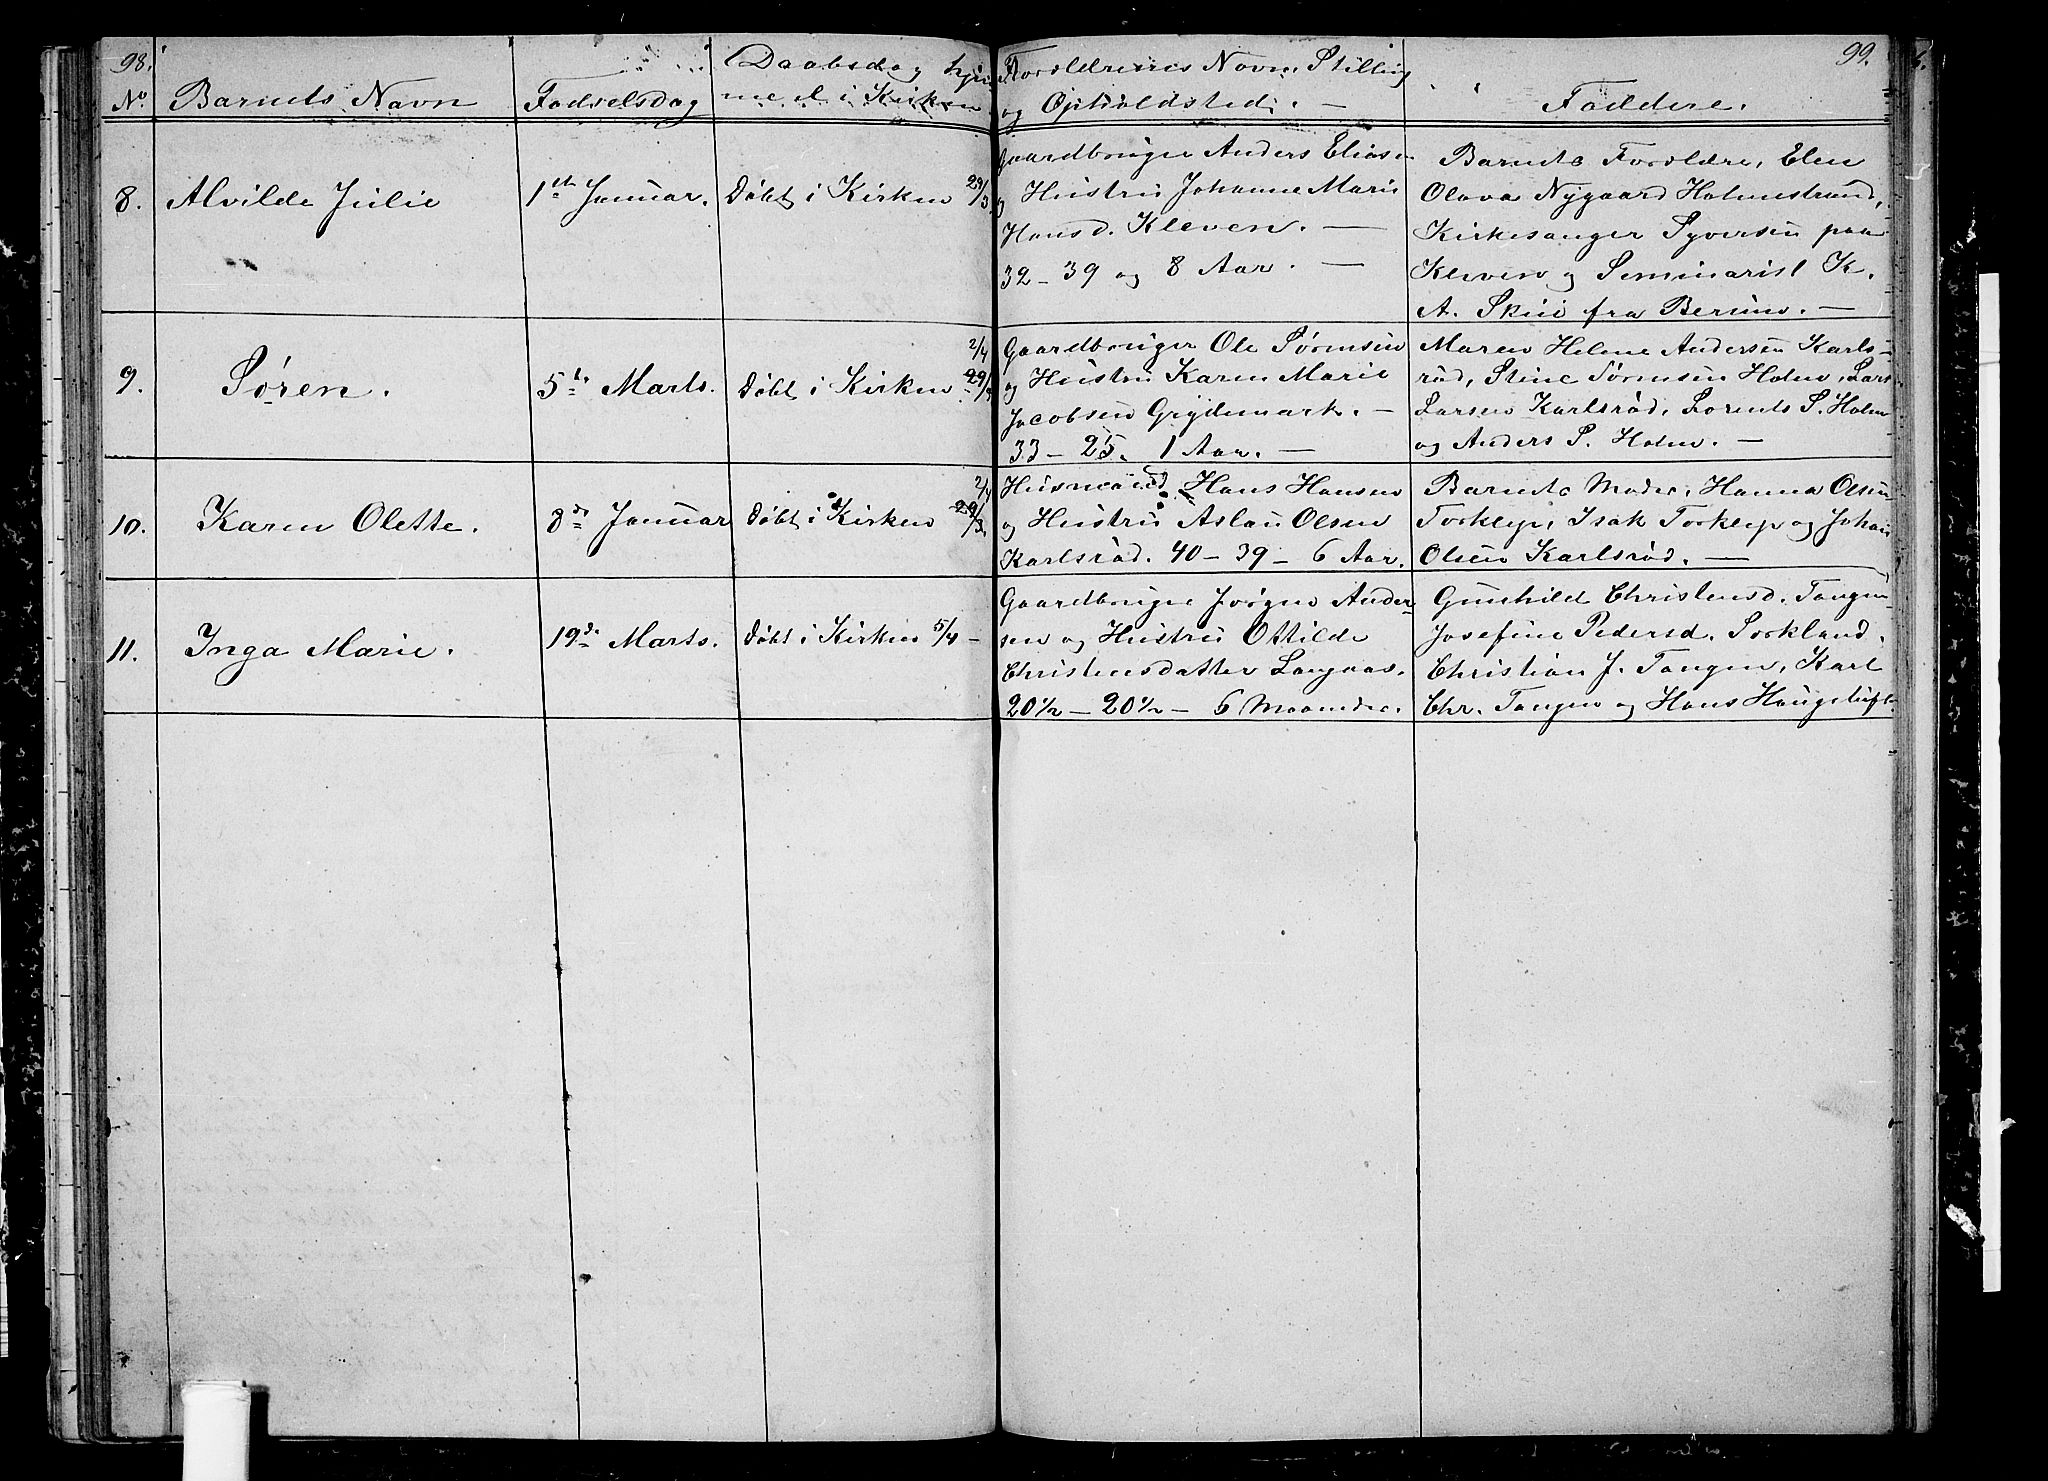 98.
No. Barnets Navn
Fødselsdag
Daabsdag hjem
me el i Kirken
Forældrenes Navn, Stilling
og Opholdsted. —
99.
Faddere.
8. Alvilde Julie
1ste Januar.
Døbt i Kirken 29/3
Gaardbruger Anders Eliasen
og Hustru Johanne Marie
Hansd. Kleven. —
32 - 39 og 8 Aar. —
Barnets Forældre, Elen
Olava Nygaard Holmestrand,
Kirkesanger Syversen paa
Kleven og Seminarist K.
A. Skui fra Berum. —
9. Søren.
5te Marts.
2/4
Døbt i Kirken 29/3
Gaardbruger Ole Sørensen
og Hustru Karen Marie
Jacobsen Grydemark. —
33 - 25. 1 Aar. —
Maren Helene Andersen Karls-
rød, Stine Sørensen Holm, Lars
Larsen Karlsrød, Lorents S. Holm
og Anders S. Holm. —
10. Karen Olette.
8de Januar
2/4
Døbt i Kirken 29/3.
Husmand Hans Hansen
og Hustru Aslau Olsen
Karlsrød. 40 - 39 - 6 Aar.
Barnets Moder, Hanna Olsen
Torklep, Isak Torklep og Johan
Olsen Karlsrød. —
11. Inga Marie.
19de Marts.
Døbt i Kirken 5/4 -
Gaardbruger Jørgen Ander-
sen og Hustru Ottilde
Christensdatter Langaas.
20½ - 20½ - 6 Maaneder.
Gunhild Christensd. Tangen
Josefine Pedersd. Sorkland,
Christian J. Tangen, Karl
Chr. Tangen og Hans Haugeluft.